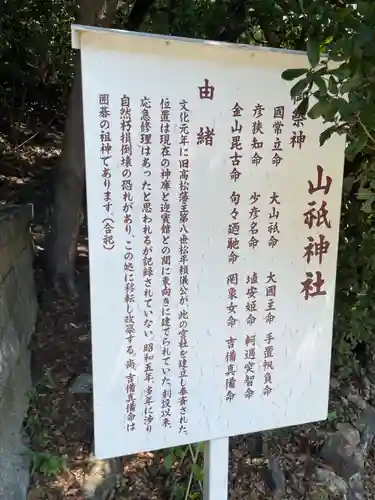 山祇神社
祭神
国常立命 大山祇命 大国主命 手置帆負命
彦狭知命 少彦名命 埴安姫命 軻遇突智命
金山毘古命 句々廼馳命 罔象女命 吉備真備命
由緒
文化元年に旧高松藩主第八世松平頼儀公が、此の宮社を建立し奉斎した
位置は現在の神庫と迎賓館との間に東向きに建てられていた。創設以来、
応急修理はあったと思われるが記録されていない。昭和五年、多年に渉り
自然朽損倒壊の恐れがあり、この処に移転し改築する。尚、吉備真備命は
囲碁の祖神であります。(合祀)